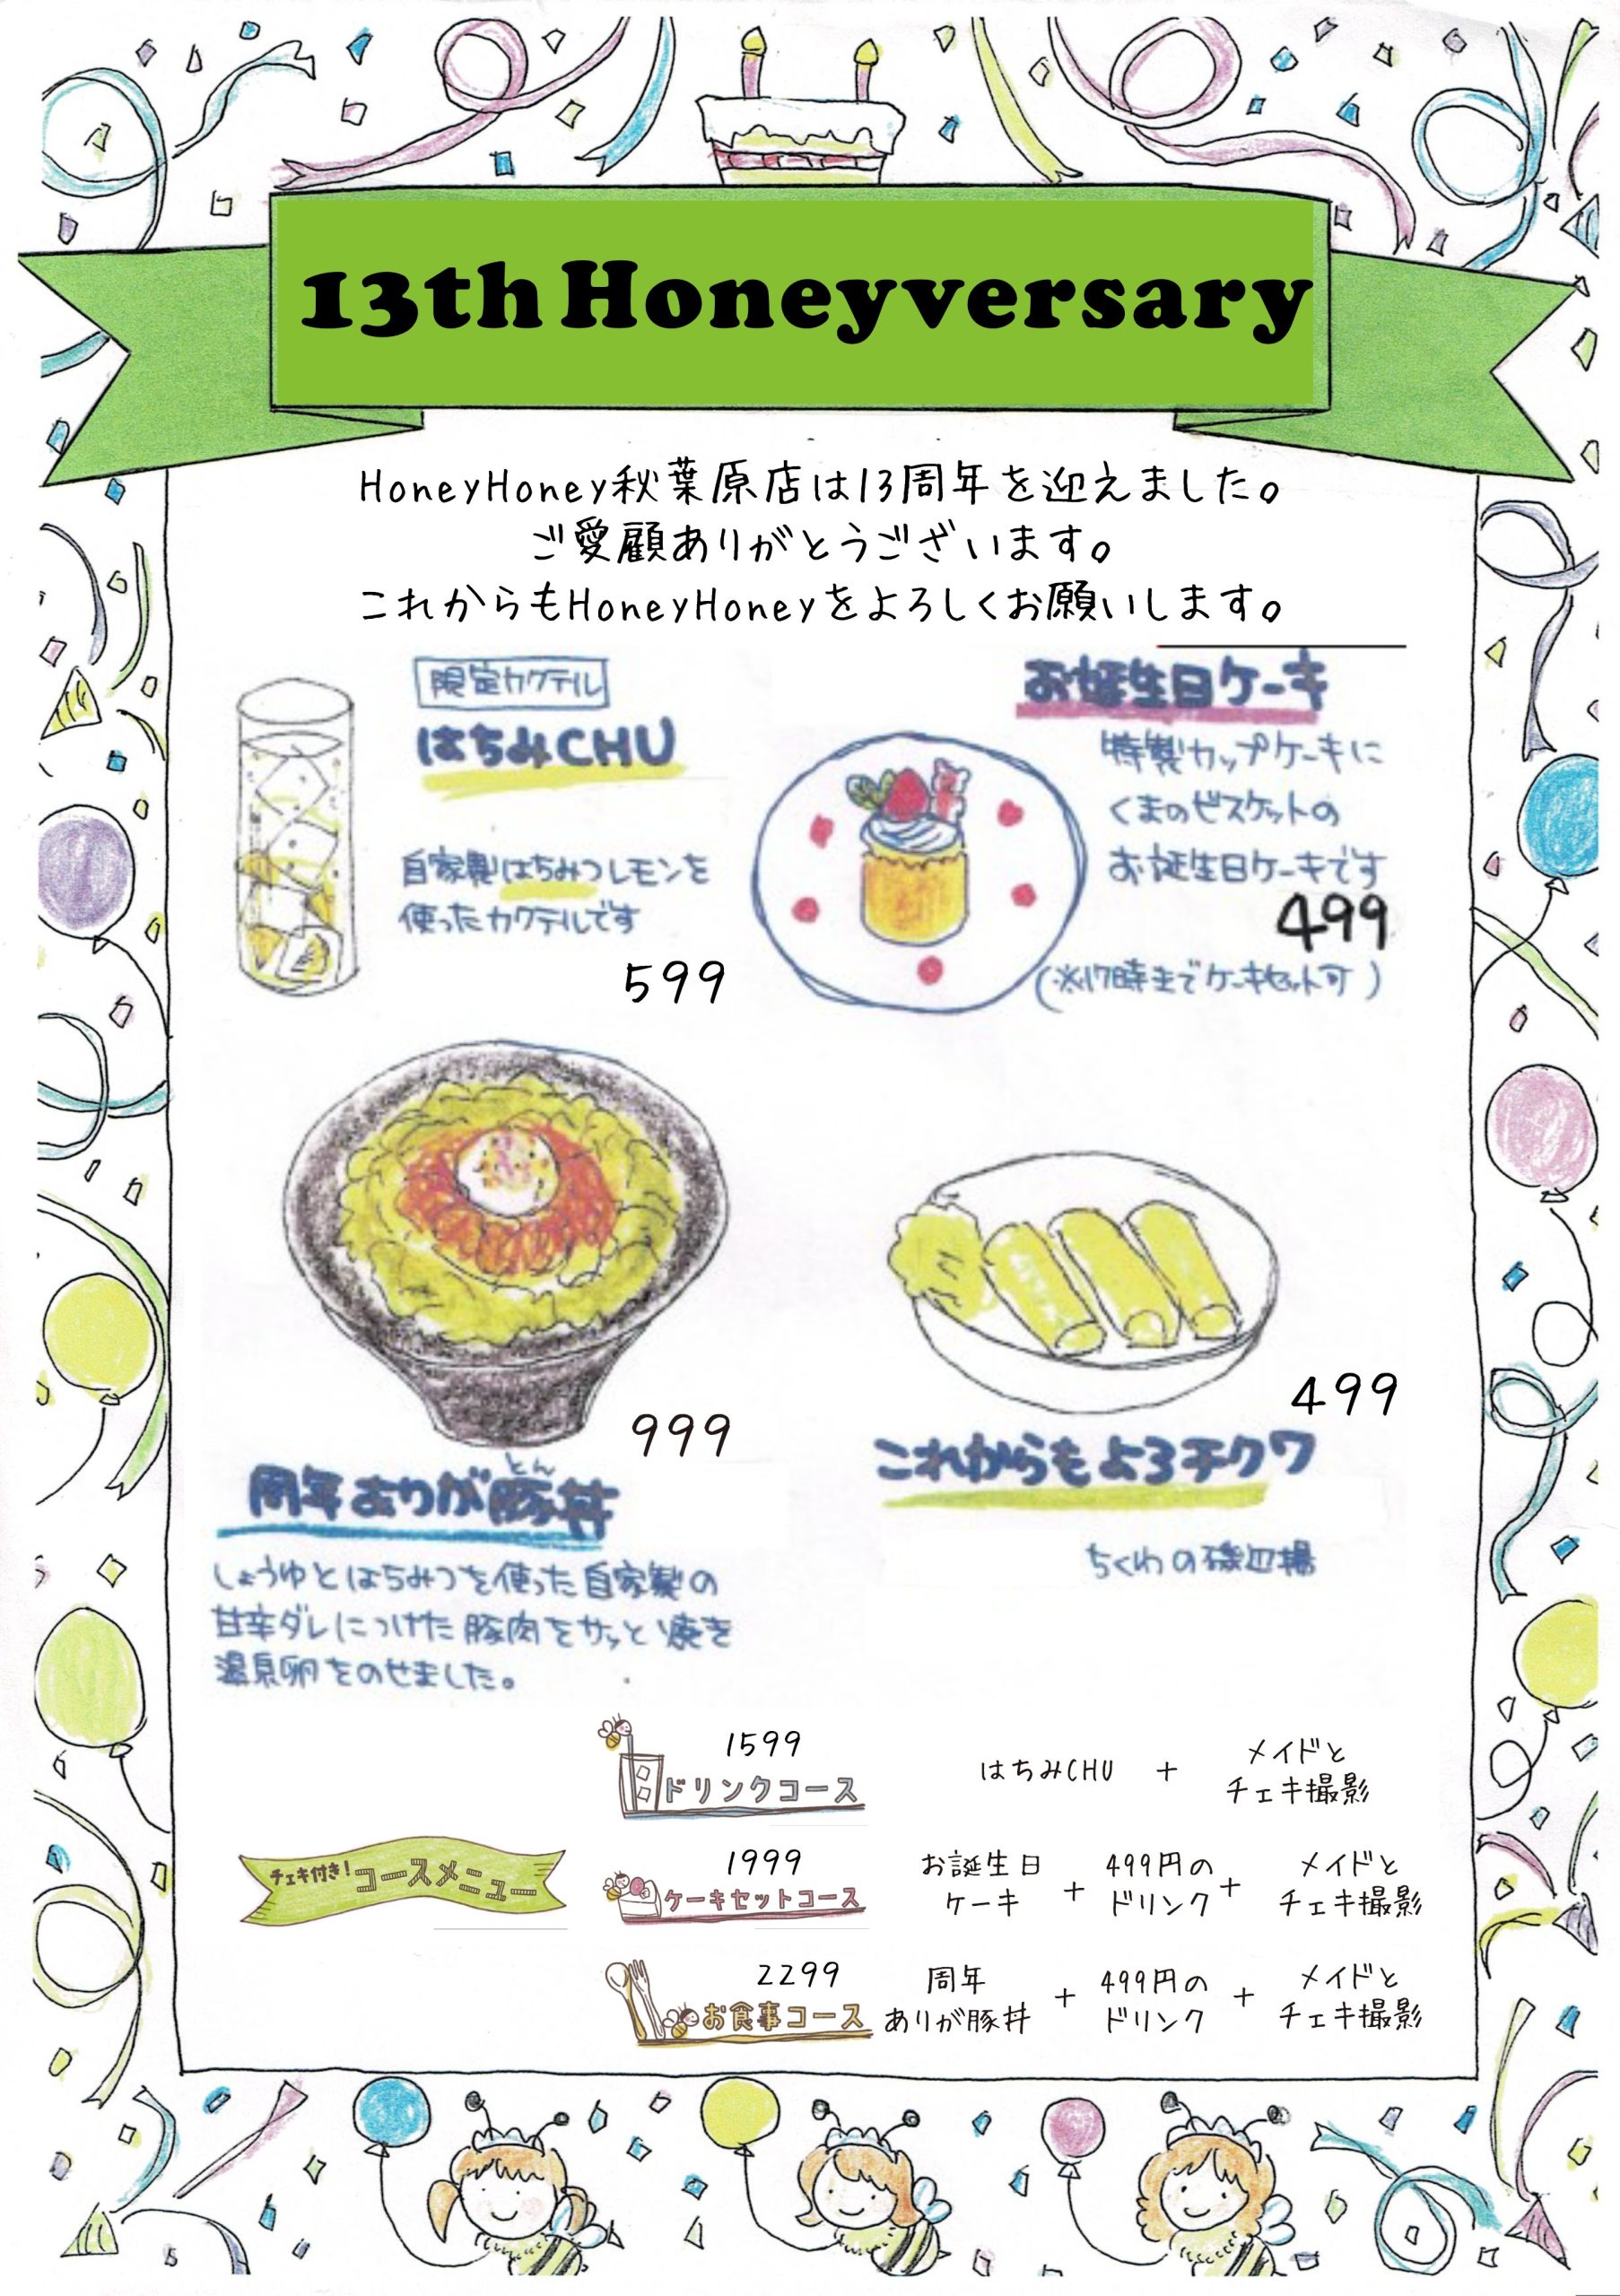 13th Honeyversary
HoneyHoney秋葉原店は13周年を迎えました。
ご愛顧ありがとうございます。
これからもHoneyHoneyをよろしくお願いします。
限定カクテル
はちみCHU
自家製はちみつレモンを
使ったカクテルです
599
お誕生日ケーキ
特製カップケーキに
くまのビスケットの
お誕生日ケーキです
499
(※17時までケーキセット可)
999
とん
周年ありが豚丼
しょうゆとはちみつを使った自家製の
甘辛ダレにつけた豚肉をサッと焼き
温泉卵をのせました。
499
これからもよろチクワ
ちくわの磯辺揚
チェキ付き!コースメニュー
1599
ドリンクコース
はちみCHU + メイドと
チェキ撮影
1999
ケーキセットコース
お誕生日
ケーキ + 499円の
ドリンク + メイドと
チェキ撮影
2299
お食事コース
周年
ありが豚丼 + 499円の
ドリンク + メイドと
チェキ撮影